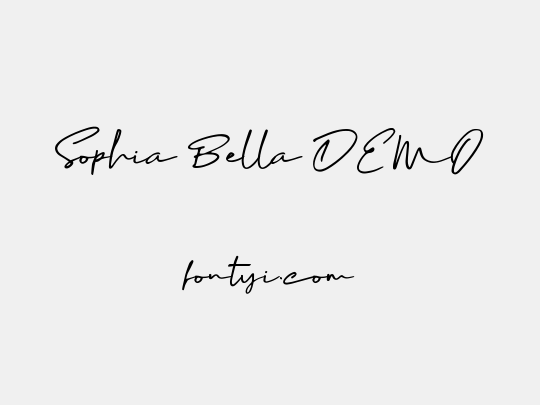 Sophia Bella DEMO
fontyi.com